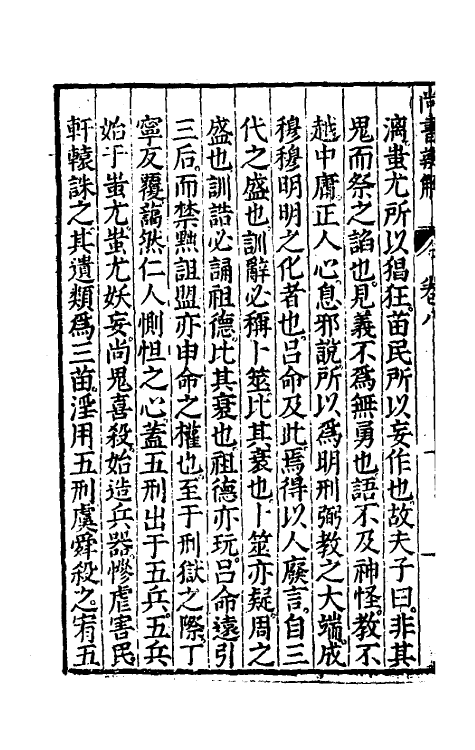 尚書辨解 卷八
漓蚩尤所以猖狂苗民所以妄作也故夫子曰非其
鬼而祭之諂也見義不爲無勇也語不及神怪教不
越中庸正人心息邪說所以爲明刑弼教之大端成
穆穆明明之化者也呂命及此焉得以人廢言自三
代之盛也訓辭必稱卜筮比其衰也卜筮亦疑周之
盛也訓誥必誦祖德比其衰也祖德亦玩呂命遠引
三后而禁黜詛盟亦申命之權也至于刑獄之際丁
寧反覆藹然仁人惻怛之心蓋五刑出于五兵五兵
始于蚩尤蚩尤妖妄尚鬼喜殺始造兵器慘虐害民
軒轅誅之其遺類爲三苗淫用五刑虞舜殺之宥五